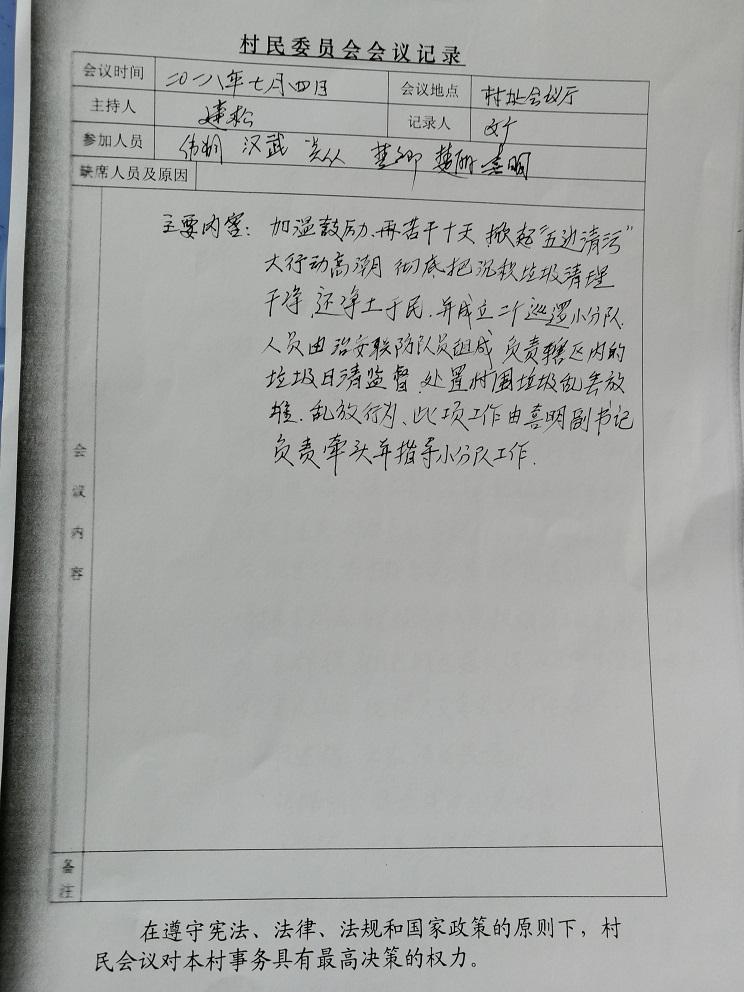 村民委员会会议记录
会议时间 二〇一八年七月四日 会议地点 村址会议厅
主持人 建松 记录人
参加人员 伟湖 汉武 楚卿 楚丽 喜明
缺席人员及原因
主要内容：加温鼓励、再苦干十天 掀起"五边清污"
大行动高潮 彻底把沉积垃圾清理
干净，还净土于民，并成立二个巡逻小分队，
人员由治安联防队员组成 负责辖区内的
垃圾日清监督，处置村围垃圾乱丢放
堆、乱放行为、此项工作由喜明副书记
负责牵头并指导小分队工作.
会议内容
备注
在遵守宪法、法律、法规和国家政策的原则下，村
民会议对本村事务具有最高决策的权力。